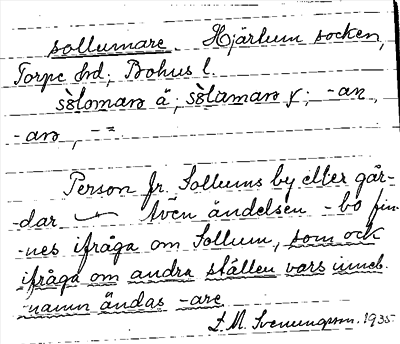 sollumare Hjärtum socken,
Torpe hd; Bohus l.
sòlomarə ä; sòlamarə y; -an,
-arə, -=
Person fr. Sollums by eller går-
-dar — Även ändelsen -bo fin-
-nes ifråga om Sollum, som ock
ifråga om andra ställen vars inneb.
namn ändas -are
F. M. Svenungsson. 1935